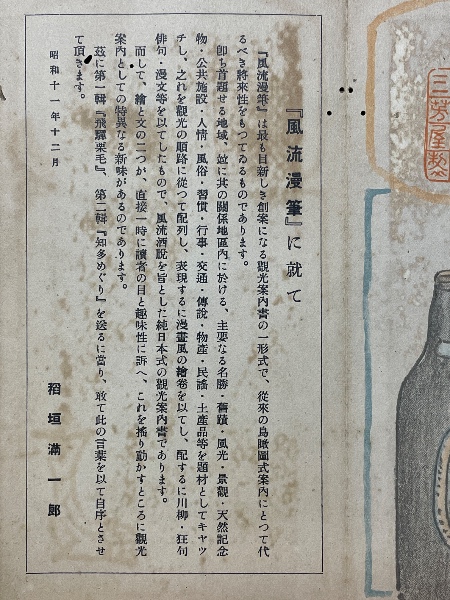 『風流漫筆』に就て
『風流漫筆』は最も目新しき創案になる觀光案内書の一形式で、從來の鳥瞰圖式案内にとつて代
るべき將來性をもつてゐるものであります。
卽ち首題せる地域、並に其の關係地區内に於ける、主要なる名勝・舊蹟・風光・景觀・天然記念
物・公共施設・人情・風俗・習慣・行事・交通・傳說・物產・民謠・土產品等を題材としてキヤツ
チし、之れを觀光の順路に從つて配列し、表現するに漫畫風の繪卷を以てし、配するに川柳・狂句
俳句・漫文等を以てしたもので、風流洒脫を旨とした純日本式の觀光案内書であります。
而して、繪と文の二つが、直接一時に讀者の目と趣味性に訴へ、これを搖り動かすところに觀光
案内としての特異なる新味があるのであります。
茲に第一輯『飛驒栗毛』、第二輯『知多めぐり』を送るに當り、敢て此の言葉を以て自序とさせ
て頂きます。
昭和十一年十二月
稻垣滿一郎
三芳屋製